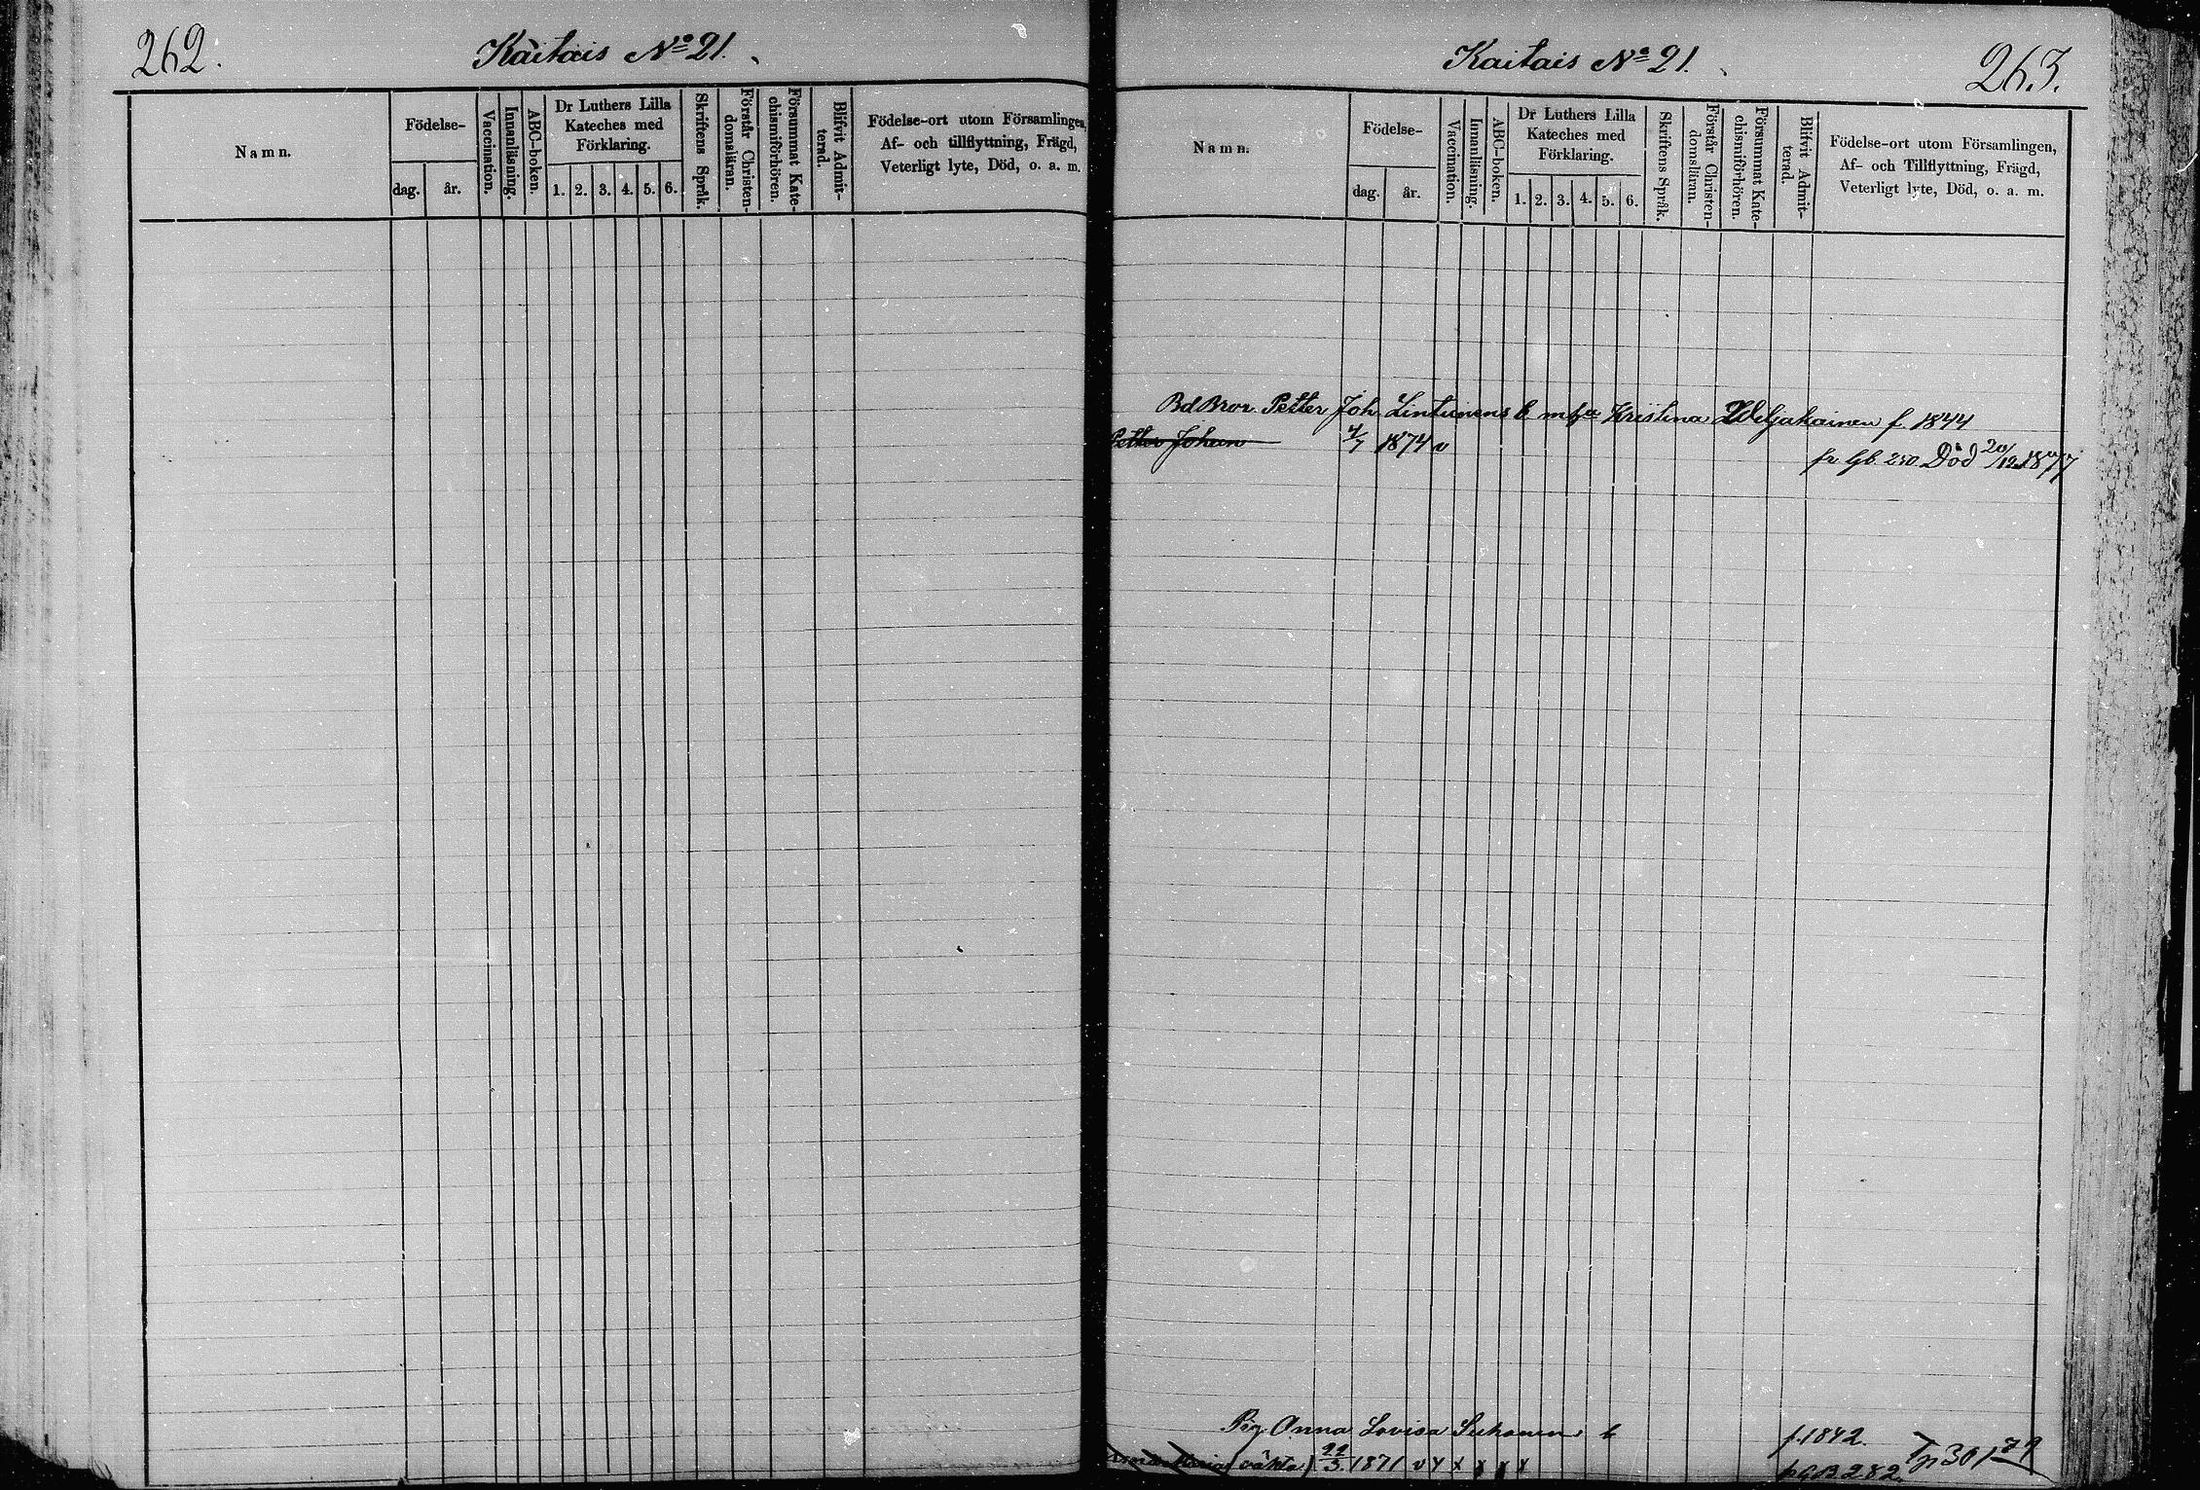 262.
Kaitais No 21.
Namn.
Födelse-
dag.
år.
Vaccination.
Innanläsning.
ABC-boken.
Dr Luthers Lilla
Kateches med
Förklaring.
1. 2. 3. 4. 5. 6.
Skriftens Språk.
Förstår Christen-
domsläran.
Försummat Kate-
chismiförhören.
Blifvit Admit-
terad.
Födelse-ort utom Församlingen,
Af- och tillflyttning, Frägd,
Veterligt lyte, Död, o. a. m.
Kaitais No 21.
263.
Namn.
Födelse-
dag.
år.
Vaccination.
Innanläsning.
ABC-boken.
Dr Luthers Lilla
Kateches med
Förklaring.
1. 2. 3. 4. 5. 6.
Skriftens Språk.
Förstår Christen-
domsläran.
Försummat Kate-
chismiförhören.
Blifvit Admit-
terad.
Födelse-ort utom Församlingen,
Af- och Tillflyttning, Frägd,
Veterligt lyte, Död, o. a. m.
Bd Bror Petter Joh. Lintunens b. Kristina Weljakainen f. 1844
Petter Johan 4/7 1874 v
fr Gb. 250. Död 20/12 1877
Pig. Anna Lovisa Suhonen b
f. 1842.
Maria 22/3 1871 v x x x x x
GB 282. Tp 301 79